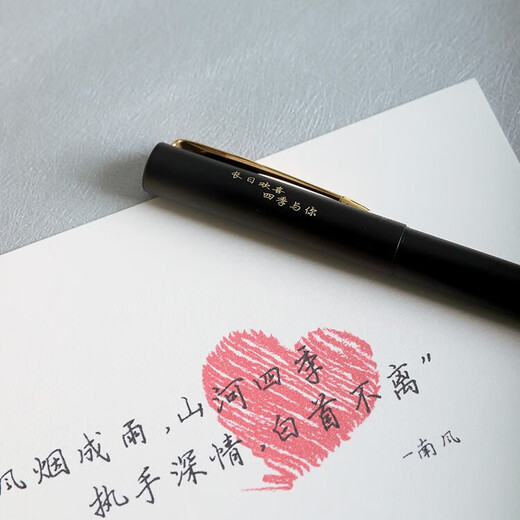 长日欢喜
四季与你
风烟成雨，山河四季
执手深情，白首不离”
一南风